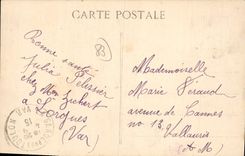 CARTE POSTALE
Bonne santé
Julia Pelissier
chez Mon
à Lorgues
(Var)
83
Mademoiselle
Marie Féraud
avenue de Cannes
no 13.
Vallauris
(A-M)